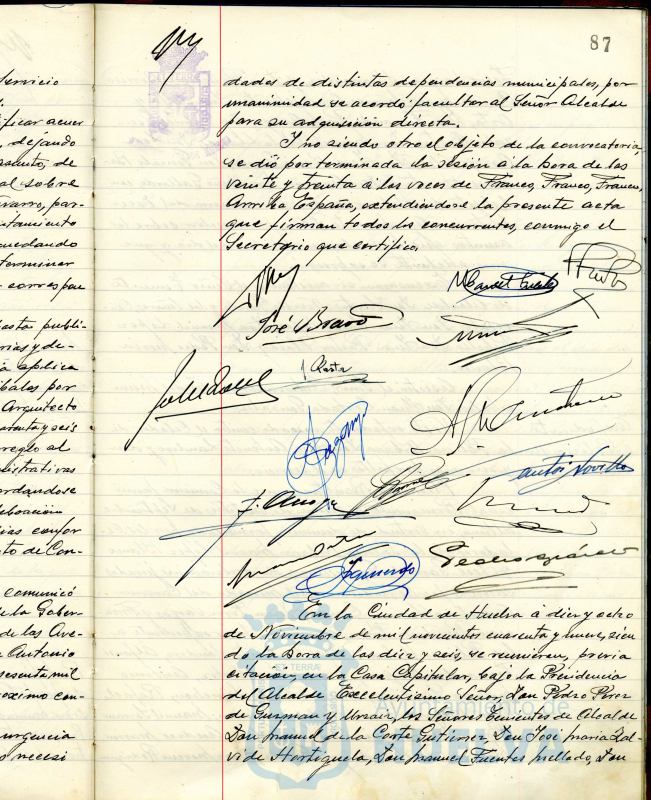 87
Servicio
ficar acuer
dejando
asunto, de
al sobre
varro, par-
tamiento
quedando
terminar
correspon
asta publi-
rias y de-
a aplica
balos por
Arquitecto
arenta y seis
reglo al
nistrativas
ordandose
ias confor
to de Con-
comunicó
de la Gober-
de las Ave-
Antonio
sesenta mil
oximo con-
urgencia
necesi
dades de distintas dependencias municipales, por
unanimidad se acordó facultar al Señor Alcalde
para su adquisición directa.
Y no siendo otro el objeto de la convocatoria,
se dió por terminada la sesión á la hora de las
veinte y treinta á las voces de Franco, Franco, Franco,
Arriba España, extendiendose la presente acta
que firman todos los concurrentes, conmigo el
Secretario que certifico.
Manuel Fuentes
José Bravo
Antoº Novillo
Figueredo
En la Ciudad de Huelva á diez y ocho
de Noviembre de mil novecientos cuarenta y nueve, sien
do la hora de las diez y seis, se reunieron, previa
citacion, en la Casa Capitular, bajo la Presidencia
del Alcalde Excelentisimo Señor, Don Pedro Pérez
de Guzman y Urzaiz, los Señores Tenientes de Alcalde
Don Manuel de la Corte Gutiérrez, Don José Maria Gal
vi de Hortiguela, Don Manuel Fuentes Mellado, Don
Ayuntamiento de
HUELVA